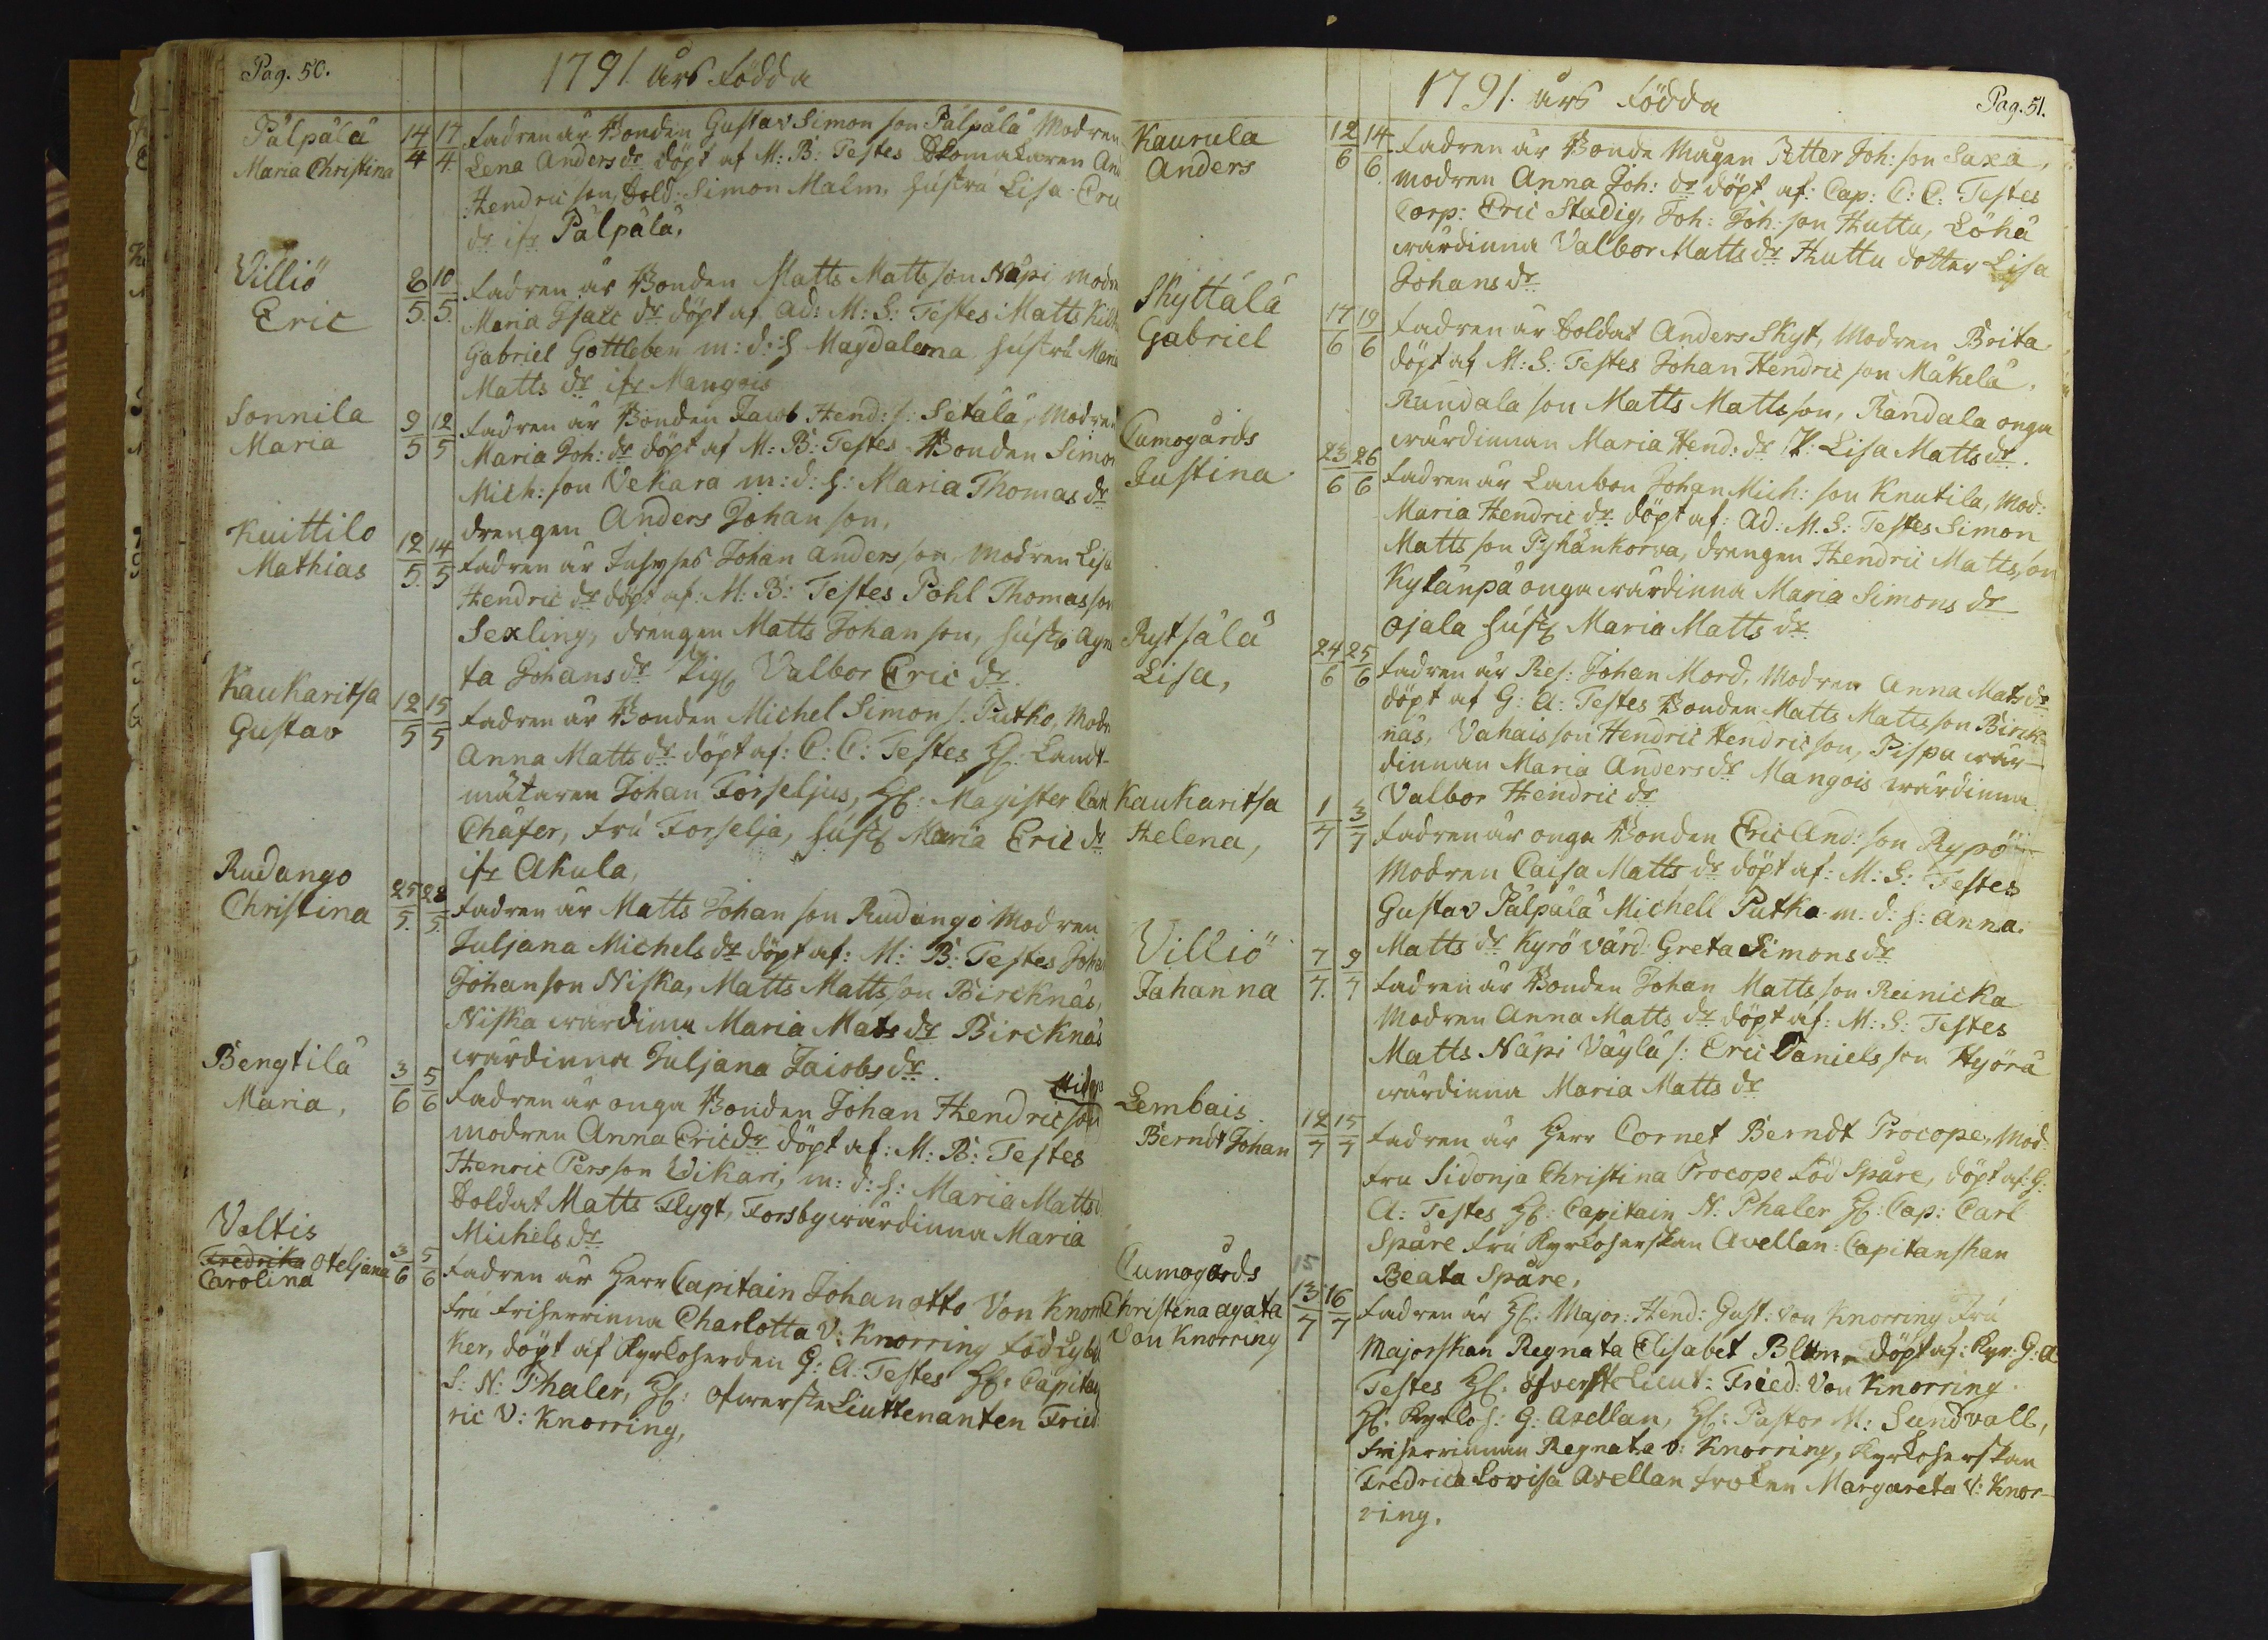 Pag. 50.
1791 års Födda
Pälpälä
Maria Christina
14/4 17/4
Fadren är Bonden Gustav Simon son Pälpälä Modren
Lena Anders dr döpt af M: B: Testes Skomakaren And
Hendric son, Sold: Simon Malm, hustru Lisa Eric
dr ifr Pälpälä,
Villiö
Eric
8/5 10/5
Fadren är Bonden Matts Matts son Näpi Modr
Maria Isac dr döpt af ad: M: S: Testes Matts
Gabriel Gottleben m: d: h Magdalena hustru Maria
Matts dr ifr Mangois
Sonnila
Maria
9/5 12/5
Fadren är Bonden Jacob Hend: s: Setälä, Modren
Maria Joh: dr döpt af M: B: Testes Bonden Simon
Mich: son Vekara m: d: h: Maria Thomas dr
drengen Anders Johan son,
Kuittilo
Mathias
12/5 14/5
Fadren är Inhyses Johan Anders son, Modren Lisa
Hendric dr döpt af: M: B: Testes Pohl Thomas son
Sexling, drengen Matts Johan son, hust Agne
ta Johans dr Pig Valbor Eric dr
Kaukaritsa
Gustav
12/5 15/5
Fadren är Bonden Michel Simon s: Putko Modr
Anna Matts dr döpt af: C: C: Testes H: Landt-
mätaren Johan Forseljus, H: Magister Carl
Chäfer, Fru Forselja, hust Maria Eric dr
ifr Akula,
Rudango
Christina
25/5 28/5
Fadren är Matts Johan son Rudango Modren
Juljana Michels dr döpt af: M: B: Testes Johan
Johan son Niska, Matts Matts son Bircknäs,
Niska wärdinna Maria Mats dr Bircknäs
wärdinna Juljana Jacobs dr.
Bengtilä
Maria,
3/6 5/6
Fadren är onga Bonden Johan Hendric son
modren Anna Eric dr döpt af: M: B: Testes
Henric Pers son Wikari, m: d: h: Maria Matts d
Soldat Matts Flygt, Forsby wärdinna Maria
Michels dr
Valtis
Fredrika Oteljana
Carolina
3/6 5/6
Fadren är Herr Capitain Johan Otto Von Knorr
Fru Friherrinna Charlotta V: Knorring född Lybe
ker, döpt af Kyrkoherden G: A: Testes H: Capitain
S: N: Thaler, H: Ofwerste Lieuttenanten Fried
ric V: Knorring,
1791. års Födda
Pag. 51.
Kaurula
Anders
12/6 14/6
Fadren är Bonde Mågen Petter Joh: son Saxa,
modren Anna Joh: dr döpt af: Cap: C: C: Testes
Corp: Eric Stadig, Joh: Joh: son Huttu, Löhä
wärdinna Valbor Matts dr Huttu dotter Lisa
Johans dr
Skyttälä
Gabriel
17/6 19/6
Fadren är Soldat Anders Skyt, Modren Brita
döpt af M: S: Testes Johan Hendric son Mäkelä,
Randala son Matts Matts son, Randala onga
wärdinnan Maria Hend: dr P: Lisa Matts dr.
Cumogårds
Justina
23/6 26/6
Fadren är Lanbon Johan Mich: son Knutila, Mod:
Maria Hendric dr döpt af: Ad: M. S: Testes Simon
Matts son Pyhänkorva, drengen Hendric Matts son
Kylänpä onga wärdinna Maria Simons dr
Ojala hust Maria Matts dr
Rytsälä
Lisa,
24/6 25/6
Fadren är Res: Johan Mord, Modren Anna Mats dr
döpt af G: A: Testes Bonden Matts Matts son Birck-
näs, Vahais son Hendric Hendric son, Pispa wär-
dinnan Maria Anders dr Mangois wärdinna
Valbor Hendric dr
Kaukaritsa
Helena,
1/7 3/7
Fadren är onga Bonden Eric And: son Rypö
Modren Caisa Matts dr döpt af: M: S: Testes
Gustav Pälpälä Michell Putka m: d: h: Anna
Matts dr Kyrö värd: Greta Simons dr
Villiö
Johanna
7/7. 9/7
Fadren är Bonden Johan Matts son Reinicka
Modren Anna Matts dr döpt af: M: S: Testes
Matts Näpi Väylä s: Eric Daniels son Hyörä
wärdinna Maria Matts dr
Lembais
Berndt Johan
12/7 15/7
Fadren är Herr Cornet Berndt Procope, Mod:
Fru Sidonja Christina Procope Föd Spåre, döpt af: G:
A: Testes H: Capitain N: Thaler H: Cap: Carl
Spåre Fru Kyrkoherskan Avellan: Capitanskan
Beata Spåre,
Cumogårds
Christina Agata
Von Knorring
13/7 16/7
Fadren är H: Major: Hend: Gust: von Knorring Fru
Majorskan Regnata Elisabet döpt af: Kyr: G: A
Testes H: öfverste Lieut: Fried: Von Knorring
H: Kyrkoh: G: Avellan, H: Pastor M: Sundvall,
Friherrinnan Regnata v: Knorring, Kyrkoherskan
Fredrica Lovisa Avellan Fröken Margareta V: Knor-
ring.